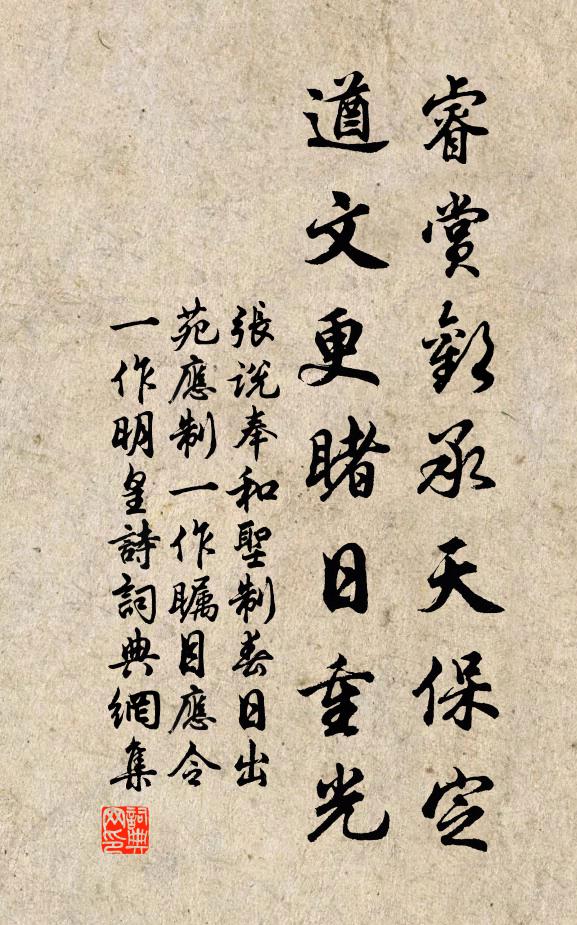 睿賞歡承天保定
遒文更睹日重光
張說奉和聖制春日出
苑應制一作瞩目應令
一作明皇詩詞典網集
詞典网印